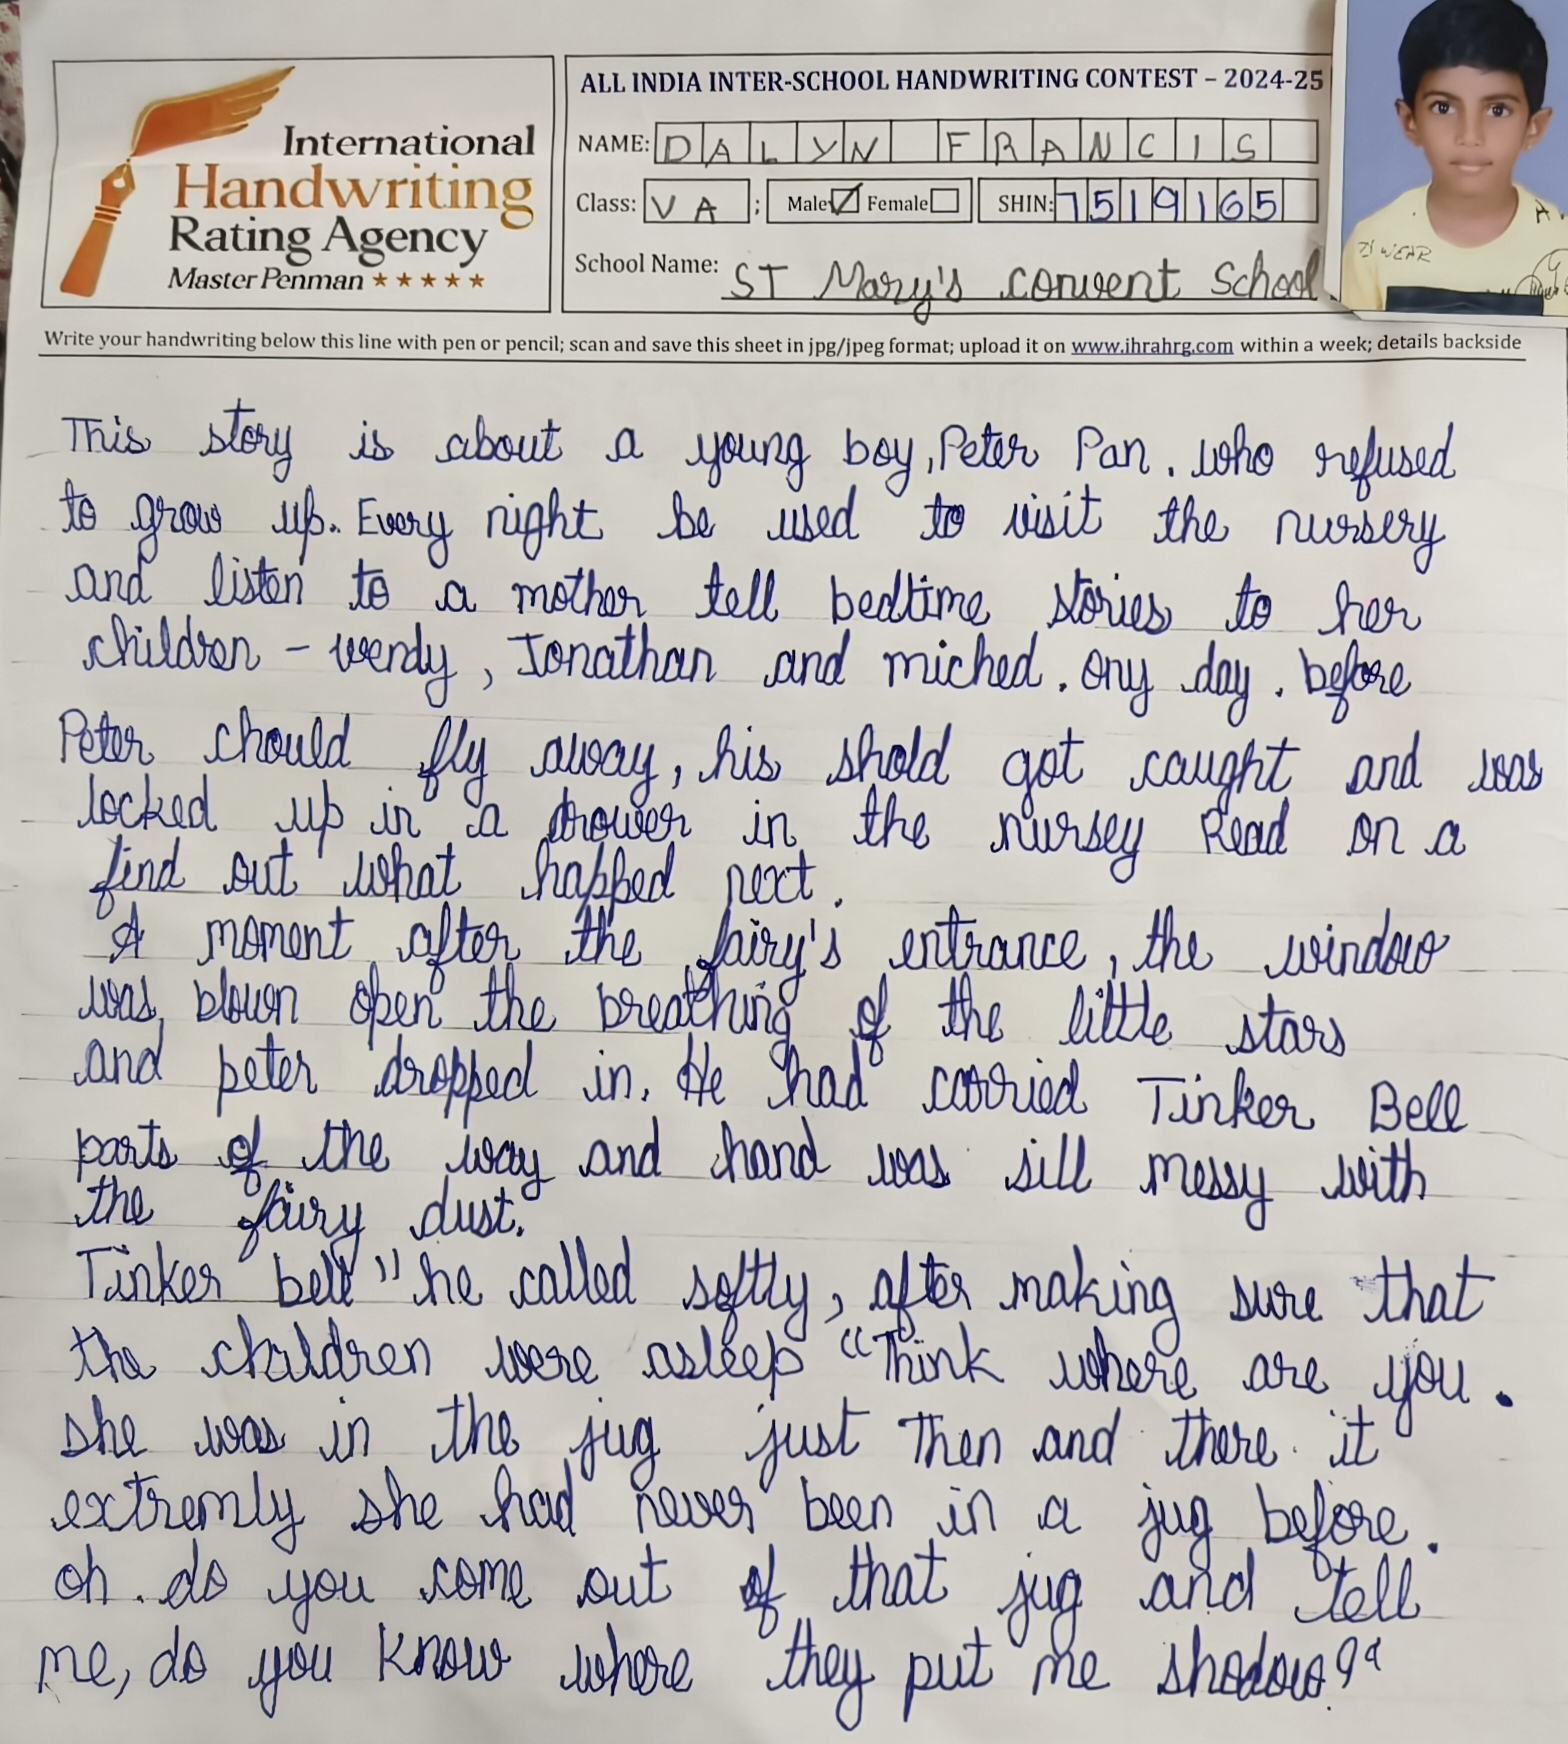 International
Handwriting
Rating Agency
Master Penman ★★★★★
ALL INDIA INTER-SCHOOL HANDWRITING CONTEST – 2024-25
NAME: DALYN FRANCIS
Class: V A ; Male ☑ Female ☐ SHIN: 7519165
School Name: ST Mary's convent School
Write your handwriting below this line with pen or pencil; scan and save this sheet in jpg/jpeg format; upload it on www.ihrahrg.com within a week; details backside
This story is about a young boy, Peter Pan. who refused
to grow up.. Every night be used to visit the nursery
and listen to a mother tell bedtime stories to her
children – wendy, Jonathan and miched. Ony day. before
Peter chould fly away, his shold got caught and was
locked up in a drower in the nursey Read on a
find out what happed next.
A moment after the fairy's entrance, the window
was blown open the breathing of the little stars
and peter dropped in. He had carried Tinker Bell
parts of the way and hand was sill messy with
the fairy dust.
Tinker bell" he called softly, after making sure that
the children were asleep "Think where are you.
she was in the jug just Then and there it
extremly she had never been in a jug before.
oh. do you come out of that jug and tell
me, do you know where they put me shodow?"